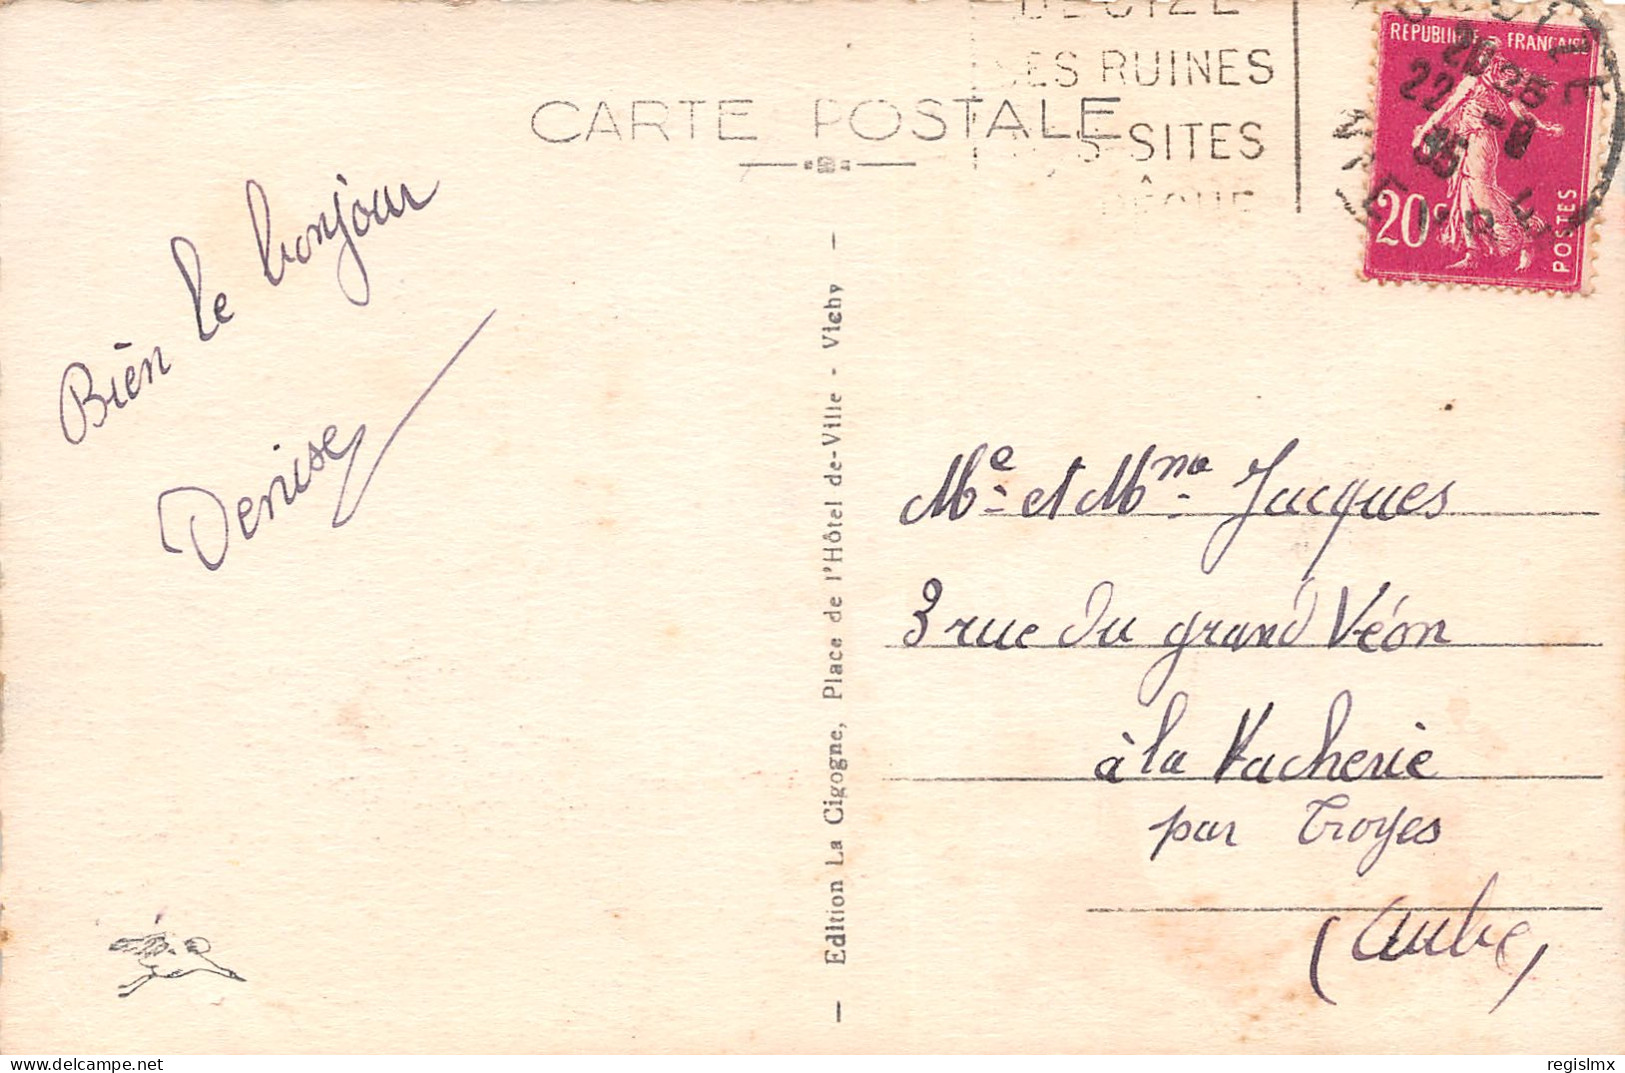 DECIZE
SES RUINES
SES SITES
PÊCHE
CARTE POSTALE
REPUBLIQUE FRANÇAISE
20c
POSTES
DECIZE
NIEVRE
20 25
22 -8
35
Bien le bonjour
Denise
Edition La Cigogne, Place de l'Hôtel de-Ville - Vichy
Me et Mme Jacques
3 rue du grand Véon
à la Vacherie
par Troyes
(Aube)
regislmx